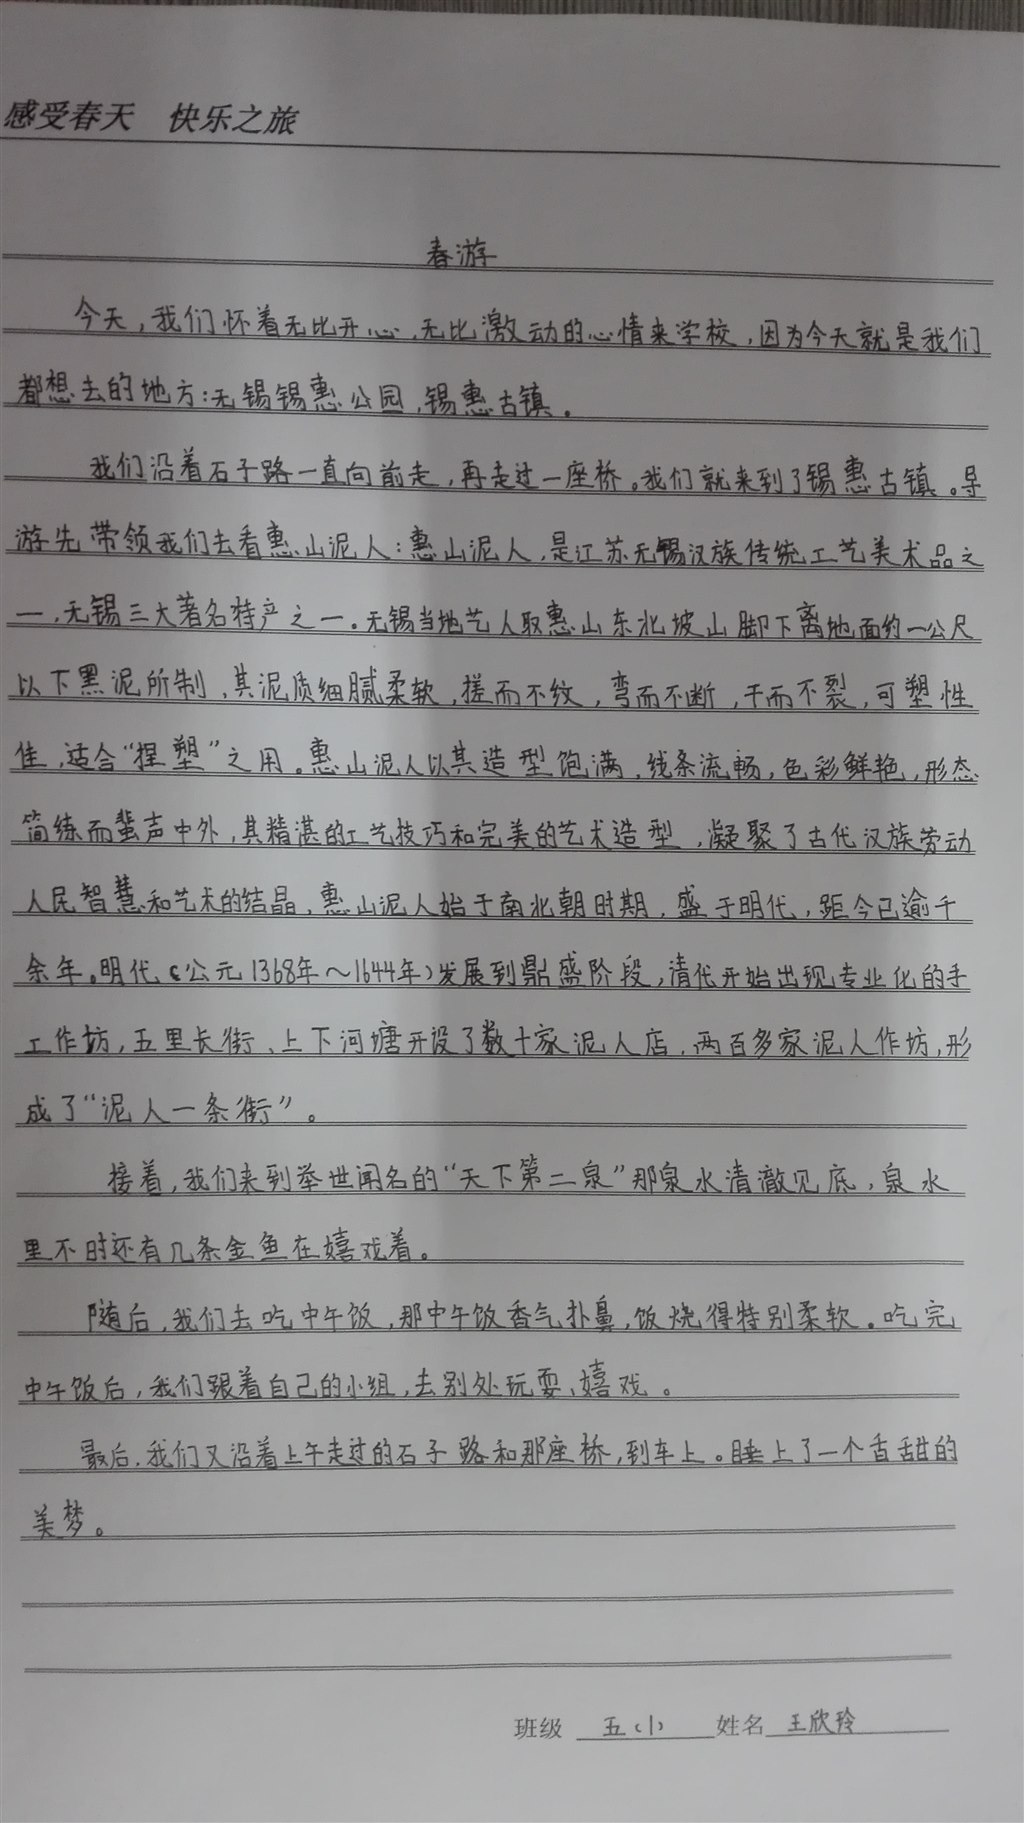 感受春天 快乐之旅
春游
今天，我们怀着无比开心，无比激动的心情来学校，因为今天就是我们
都想去的地方：无锡锡惠公园，锡惠古镇。
我们沿着石子路一直向前走，再走过一座桥。我们就来到了锡惠古镇。导
游先带领我们去看惠山泥人：惠山泥人，是江苏无锡汉族传统工艺美术品之
一，无锡三大著名特产之一。无锡当地艺人取惠山东北坡山脚下离地面约一公尺
以下黑泥所制，其泥质细腻柔软，搓而不纹，弯而不断，干而不裂，可塑性
佳，适合“捏塑”之用。惠山泥人以其造型饱满，线条流畅，色彩鲜艳，形态
简练而蜚声中外，其精湛的工艺技巧和完美的艺术造型，凝聚了古代汉族劳动
人民智慧和艺术的结晶，惠山泥人始于南北朝时期，盛于明代，距今已逾千
余年。明代（公元1368年～1644年）发展到鼎盛阶段，清代开始出现专业化的手
工作坊，五里长街、上下河塘开设了数十家泥人店，两百多家泥人作坊，形
成了“泥人一条街”。
接着，我们来到举世闻名的“天下第二泉”那泉水清澈见底，泉水
里不时还有几条金鱼在嬉戏着。
随后，我们去吃中午饭，那中午饭香气扑鼻，饭烧得特别柔软。吃完
中午饭后，我们跟着自己的小组，去别处玩耍、嬉戏。
最后，我们又沿着上午走过的石子路和那座桥，到车上。睡上了一个香甜的
美梦。
班级 五（1） 姓名 王欣玲